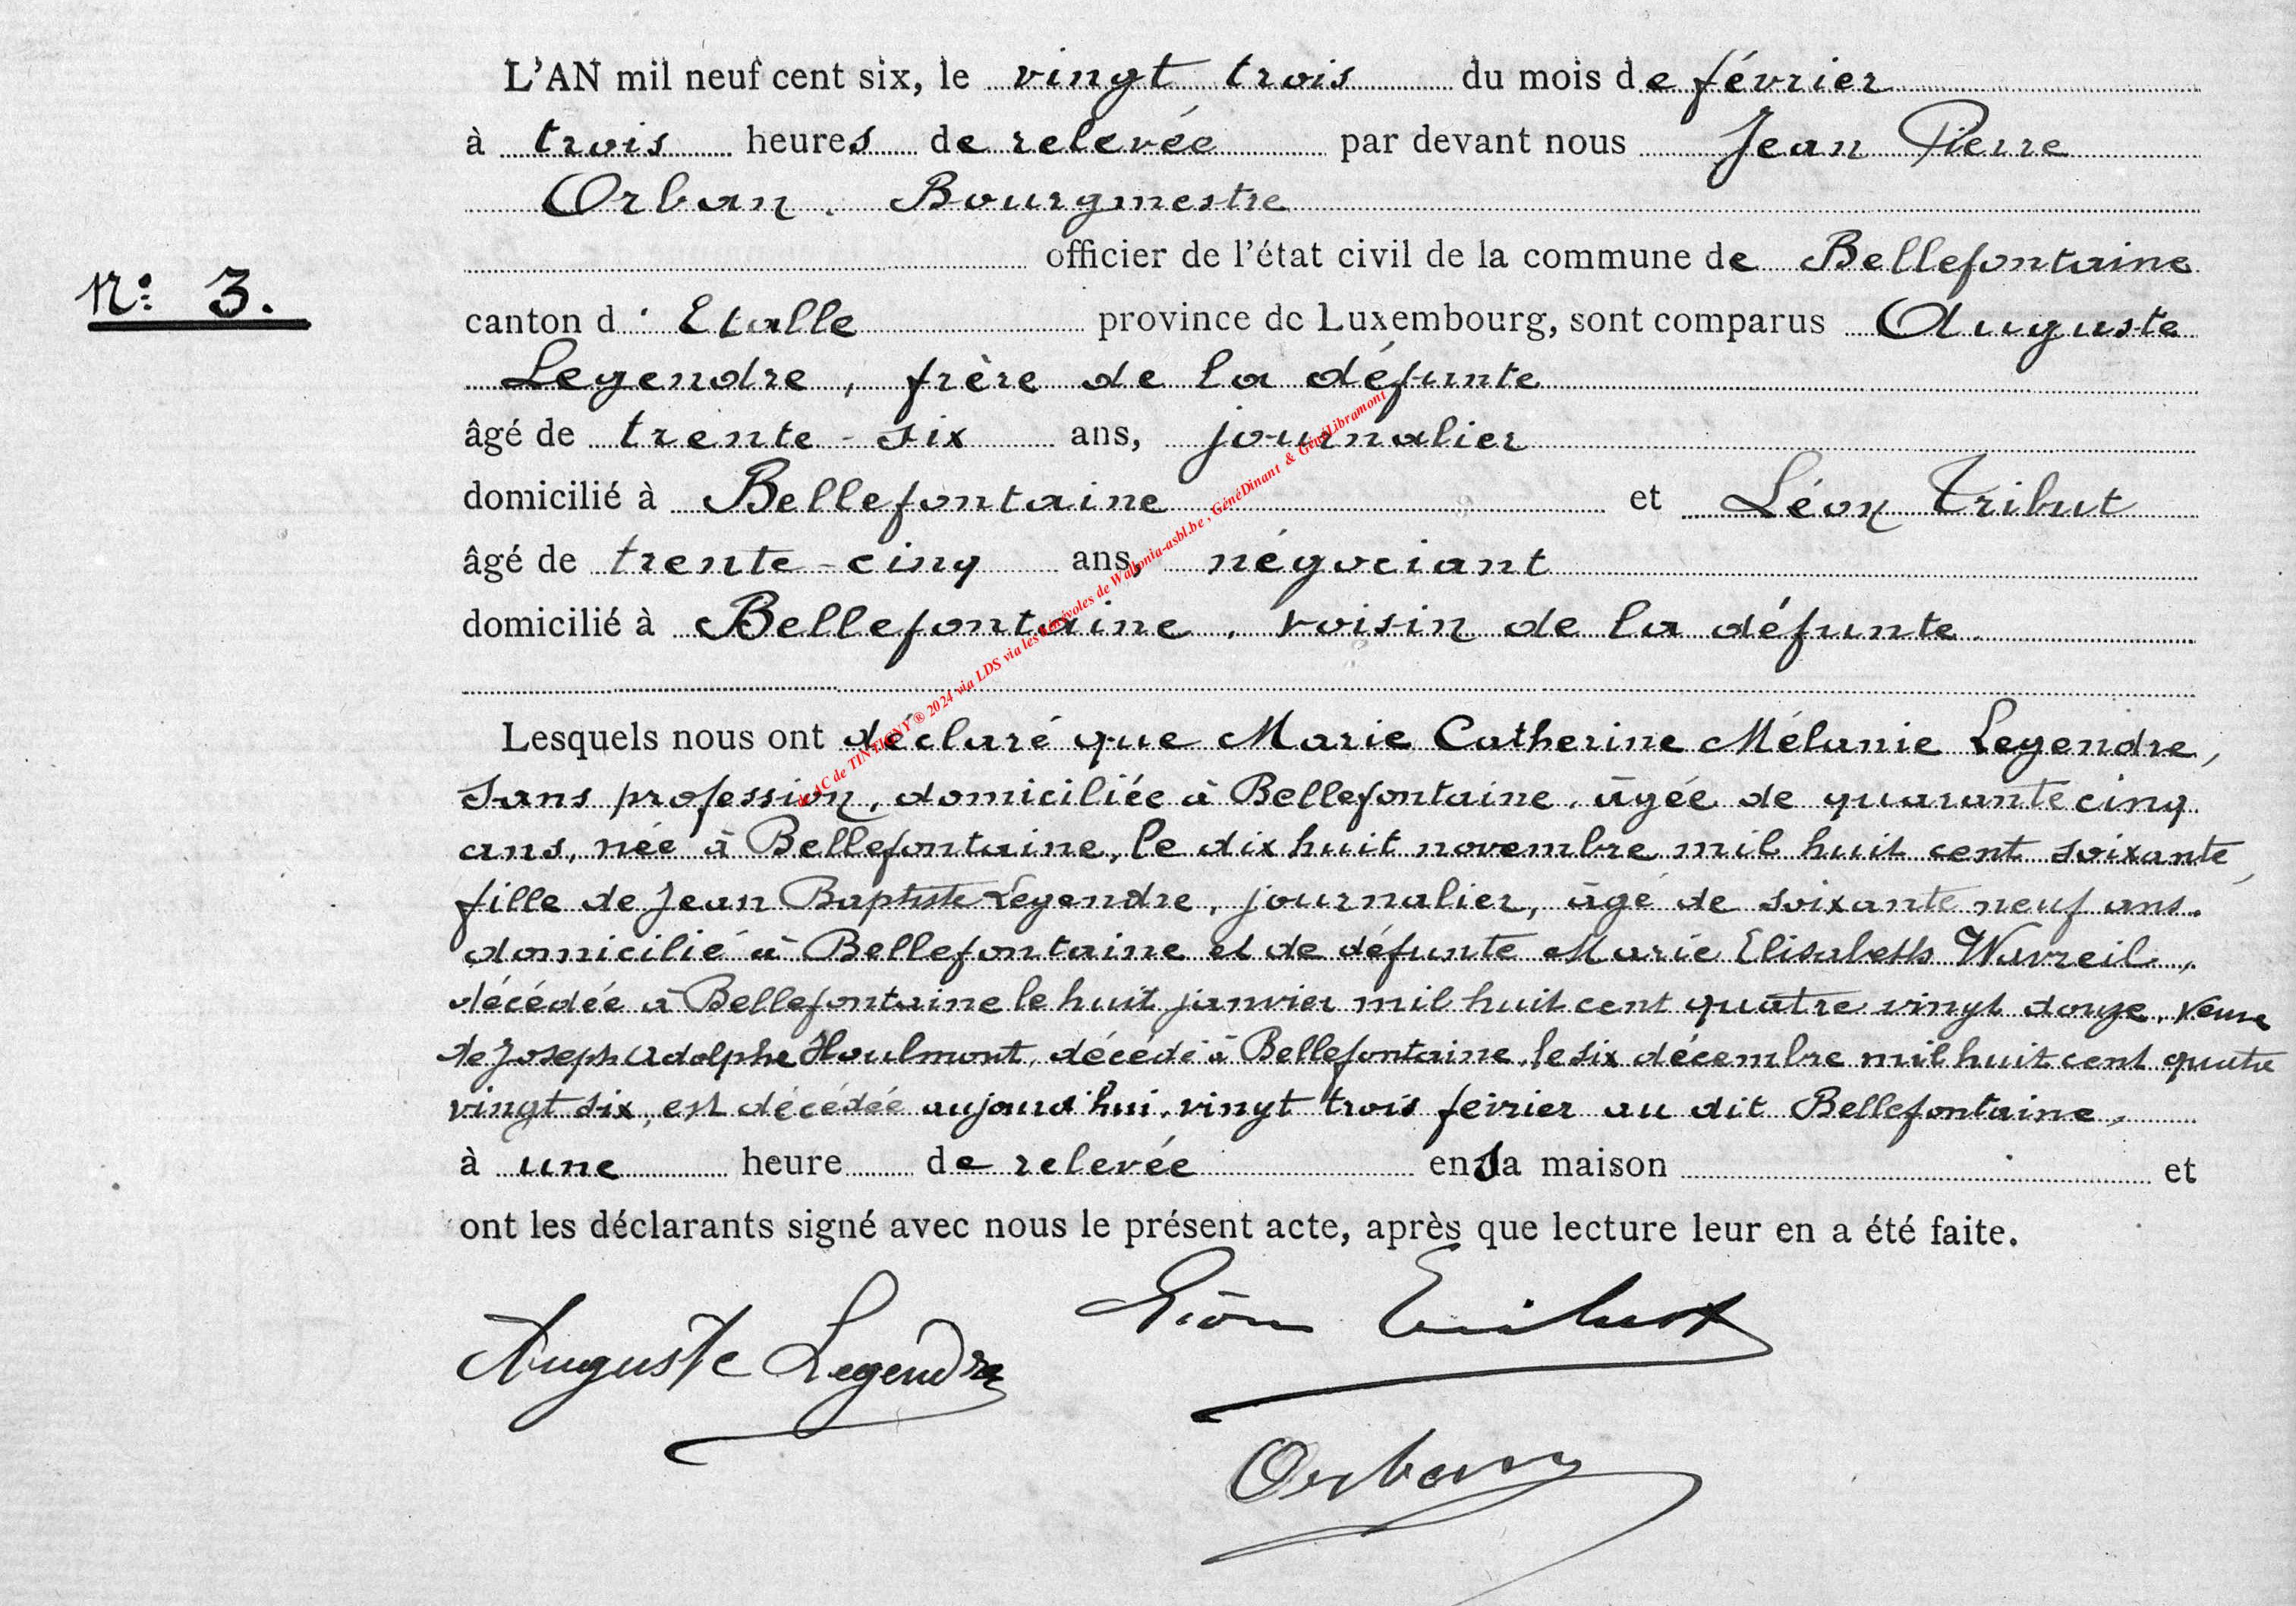 L'AN mil neuf cent six, le vingt trois du mois de février
à trois heures de relevée par devant nous Jean Pierre
Orban, Bourgmestre
officier de l'état civil de la commune de Bellefontaine
N° 3.
canton d'Etalle province de Luxembourg, sont comparus Auguste
Legendre, frère de la défunte
âgé de trente-six ans, journalier
domicilié à Bellefontaine et Léon Tribut
âgé de trente-cinq ans, négociant
domicilié à Bellefontaine, voisin de la défunte.
Lesquels nous ont déclaré que Marie Catherine Mélanie Legendre,
sans profession, domiciliée à Bellefontaine, âgée de quarante cinq
ans, née à Bellefontaine, le dix huit novembre mil huit cent soixante,
fille de Jean Baptiste Legendre, journalier, âgé de soixante neuf ans,
domicilié à Bellefontaine et de défunte Marie Elisabeth Wavreil,
décédée à Bellefontaine le huit janvier mil huit cent quatre vingt douze, veuve
de Joseph Adolphe Houlmont, décédé à Bellefontaine, le six décembre mil huit cent quatre
vingt six, est décédée aujourd'hui, vingt trois feivrier au dit Bellefontaine,
à une heure de relevée en sa maison et
ont les déclarants signé avec nous le présent acte, après que lecture leur en a été faite.
Auguste Legendre
Léon Tribut
Orban
AC de TINTIGNY ® 2024 via LDS via les bénévoles de Wallonia-asbl.be, GénéDinant & GénéLibramont